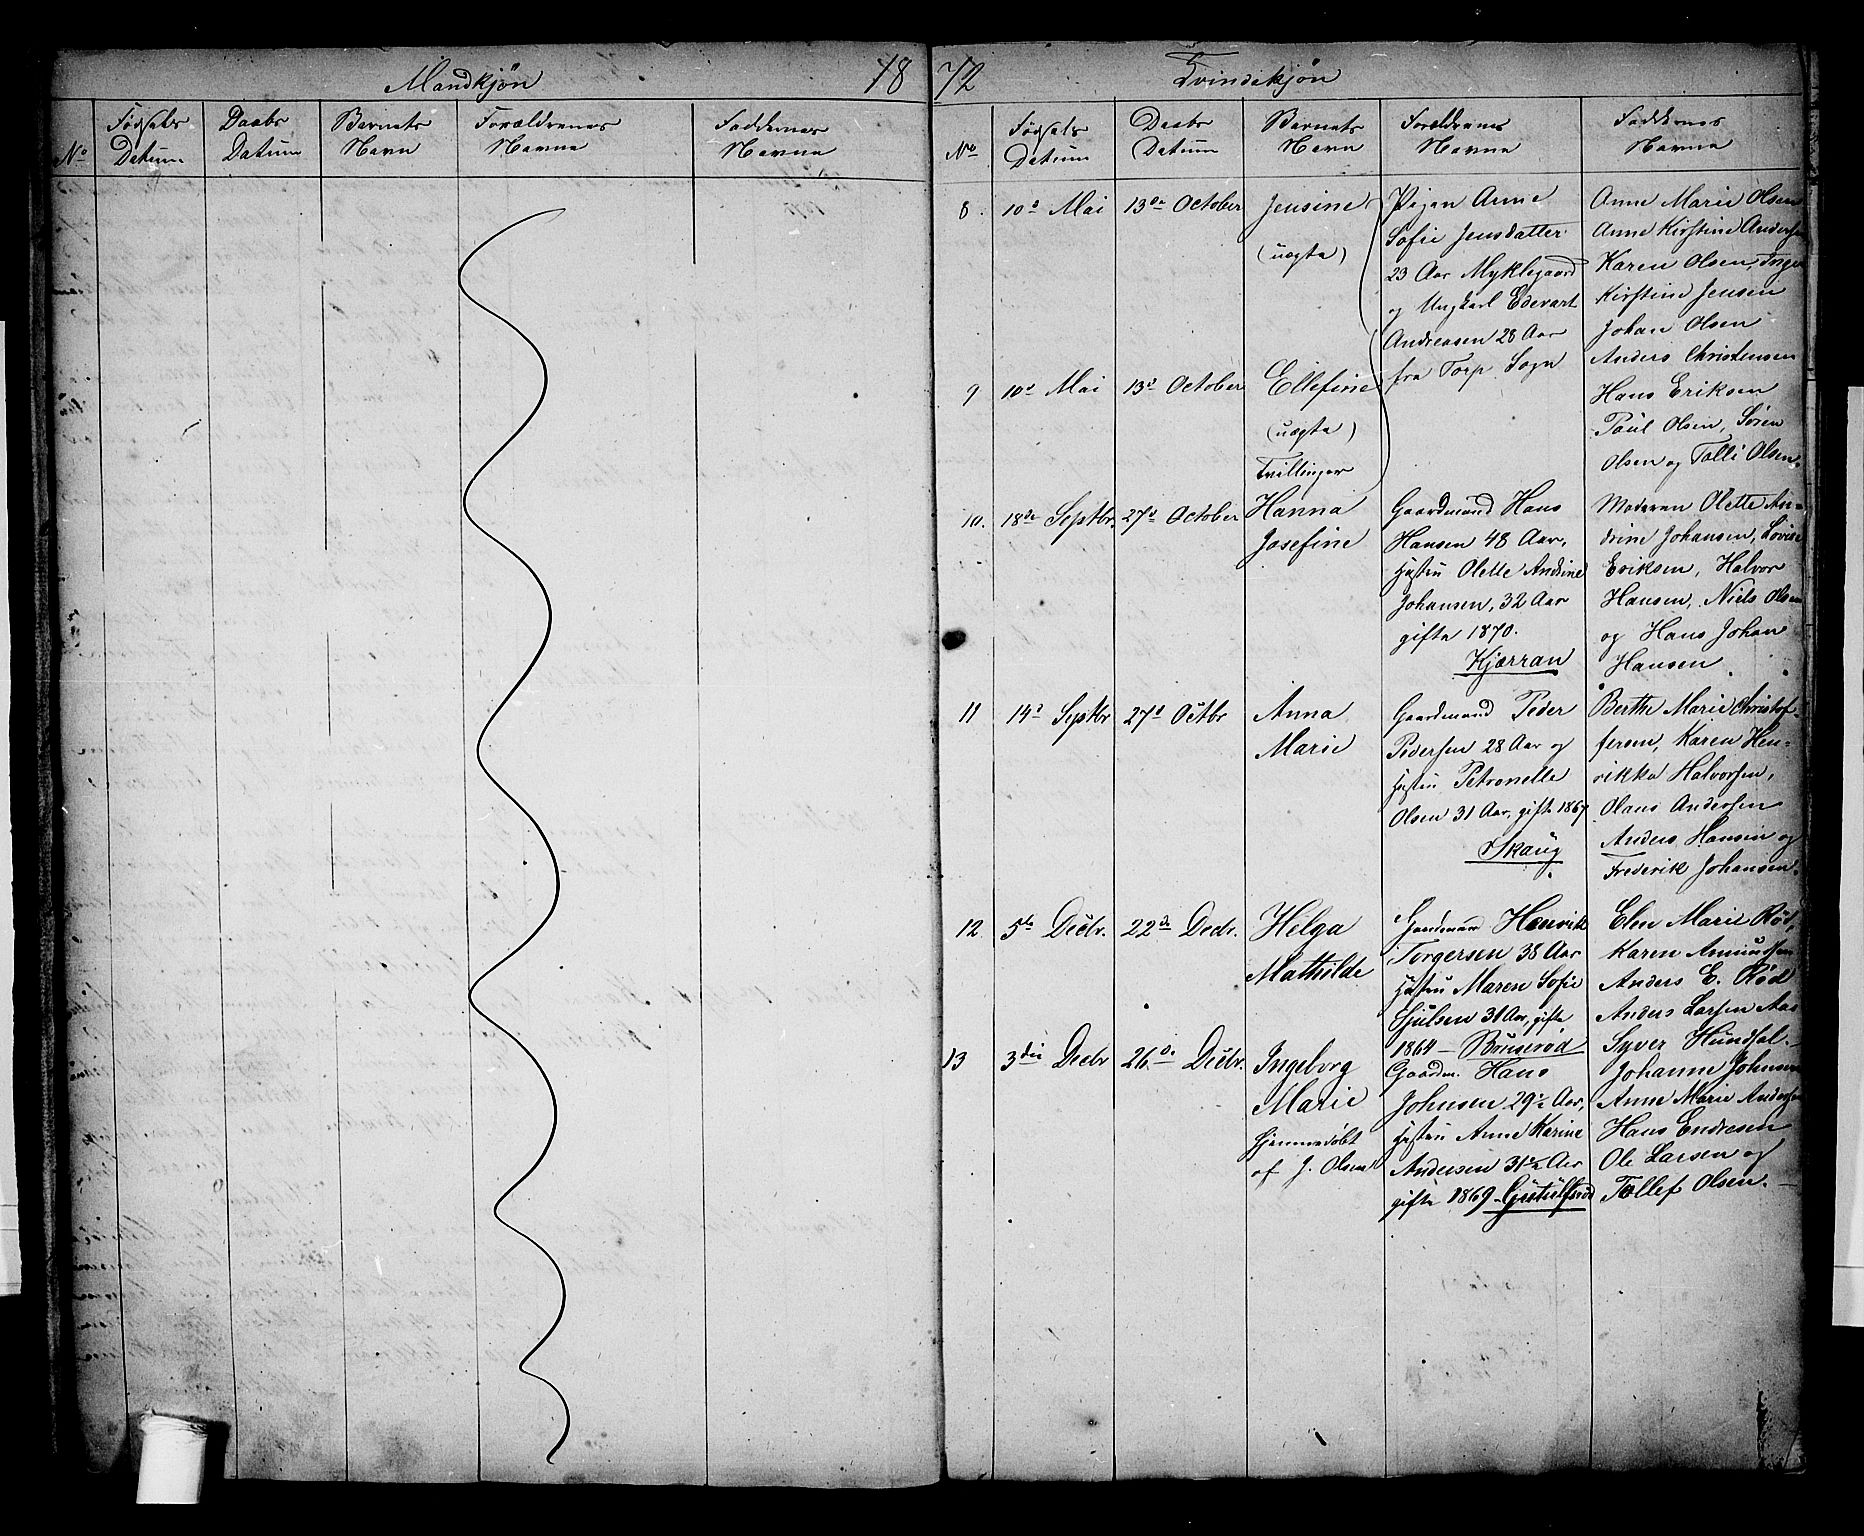 Mandkjøn 18
No
Fødsels Datum
Daabs Datum
Barnets Navn
Forældrenes Navne
Faddernes Navne
72 Qvindekjøn
No
Fødsels Datum
Daabs Datum
Barnets Navn
Forældrenes Navne
Faddernes Navne
8. 10d Mai 13de October
Jensine
(uægte)
Pigen Anne
Sofie Jensdatter
23 Aar Myklegaard
og Ungkarl Edevart
Andreasen 28 Aar
fra Torp Sogn
Anne Marie Olsen
Anne Kirstine Andersen
Karen Olsen, Inger
Kirstine Jensen
Johan Olsen
Anders Christensen
9 10d Mai 13d October
Ellefine
(uægte)
Tvillinger
Hans Eriksen
Paul Olsen, Søren
Olsen og Tolli Olsen.
10. 18de Septbr. 27d October
Hanna
Josefine
Gaardmand Hans
Hansen 48 Aar,
Hustru Olette Andrine
Johansen, 32 Aar
gifte 1870.
Kjærran
Moderen Olette An-
drine Johansen, Lovise
Eriksen, Halvor
Hansen, Niels Olsen
og Hans Johan
Hansen
11 14d Septbr 27d Octbr
Anna
Marie
Gaardmand Peder
Pedersen 28 Aar og
Hustru Petronelle
Olsen 31 Aar, gifte 1867
Skaug
Berthe Marie Christof-
fersen, Karen Hen-
rikka Halvorsen,
Olaus Andersen
Anders Hansen og
Frederik Johansen.
12. 5te Decbr. 22de Decbr.
Helga
Mathilde
Gaardmand Henrik
Torgersen 38 Aar
Hustru Maren Sofie
Gjulsen 31 Aar, gifte
1864 - Bruserød
Elen Marie Rød,
Karen Amundsen
Anders E. Rød
Anders Larsen Aas
Syver Hundsal.
13 3die Decbr 26de Decbr.
Ingeborg
Marie
hjemmedøbt
af J. Olsen
Gaardm. Hans
Johnsen 29½ Aar,
Hustru Anne Karine
Andersen 31½ Aar
gifte 1869 - Gjetulfsrød
Johanne Johnsen
Anne Marie Andersen
Hans Endresen
Ole Larsen og
Tollef Olsen. -